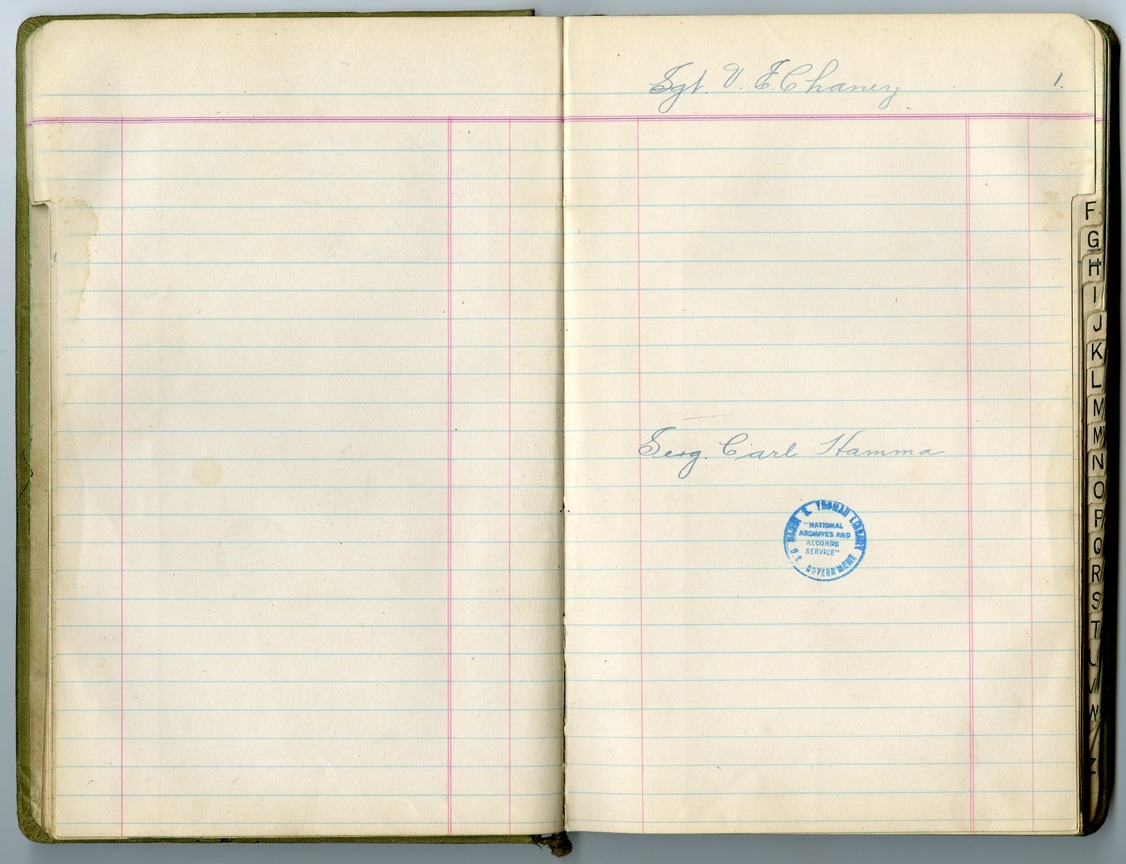 Sgt. V. E. Chaney 1.
Serg. Carl Hamma
HARRY S. TRUMAN LIBRARY
"NATIONAL
ARCHIVES AND
RECORDS
SERVICE"
U.S. GOVERNMENT
F
G
H
I
J
K
L
M
Mc
N
O
P
Q
R
S
T
U
V
W